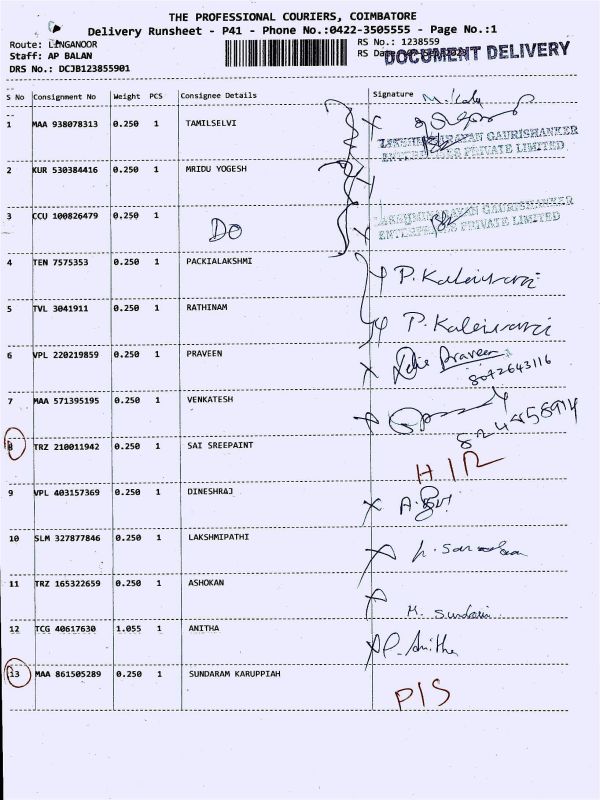 THE PROFESSIONAL COURIERS, COIMBATORE
Delivery Runsheet - P41 - Phone No.:0422-3505555 - Page No.:1
Route: LINGANOOR
RS No.: 1238559
Staff: AP BALAN
RS Date
DOCUMENT DELIVERY
DRS No.: DCJB123855901
S No Consignment No Weight PCS Consignee Details Signature
1 MAA 938078313 0.250 1 TAMILSELVI
GAURISHANKER
PRIVATE LIMITED
2 KUR 530384416 0.250 1 MRIDU YOGESH
3 CCU 100826479 0.250 1
DO
GAURISHANKER
PRIVATE LIMITED
4 TEN 7575353 0.250 1 PACKIALAKSHMI
5 TVL 3041911 0.250 1 RATHINAM
6 VPL 220219859 0.250 1 PRAVEEN Praveen
8072643116
7 MAA 571395195 0.250 1 VENKATESH
8 TRZ 210011942 0.250 1 SAI SREEPAINT
9 VPL 403157369 0.250 1 DINESHRAJ
10 SLM 327877846 0.250 1 LAKSHMIPATHI
11 TRZ 165322659 0.250 1 ASHOKAN
M. Sundari
12 TCG 40617630 1.055 1 ANITHA P. Anitha
13 MAA 861505289 0.250 1 SUNDARAM KARUPPIAH
P/S